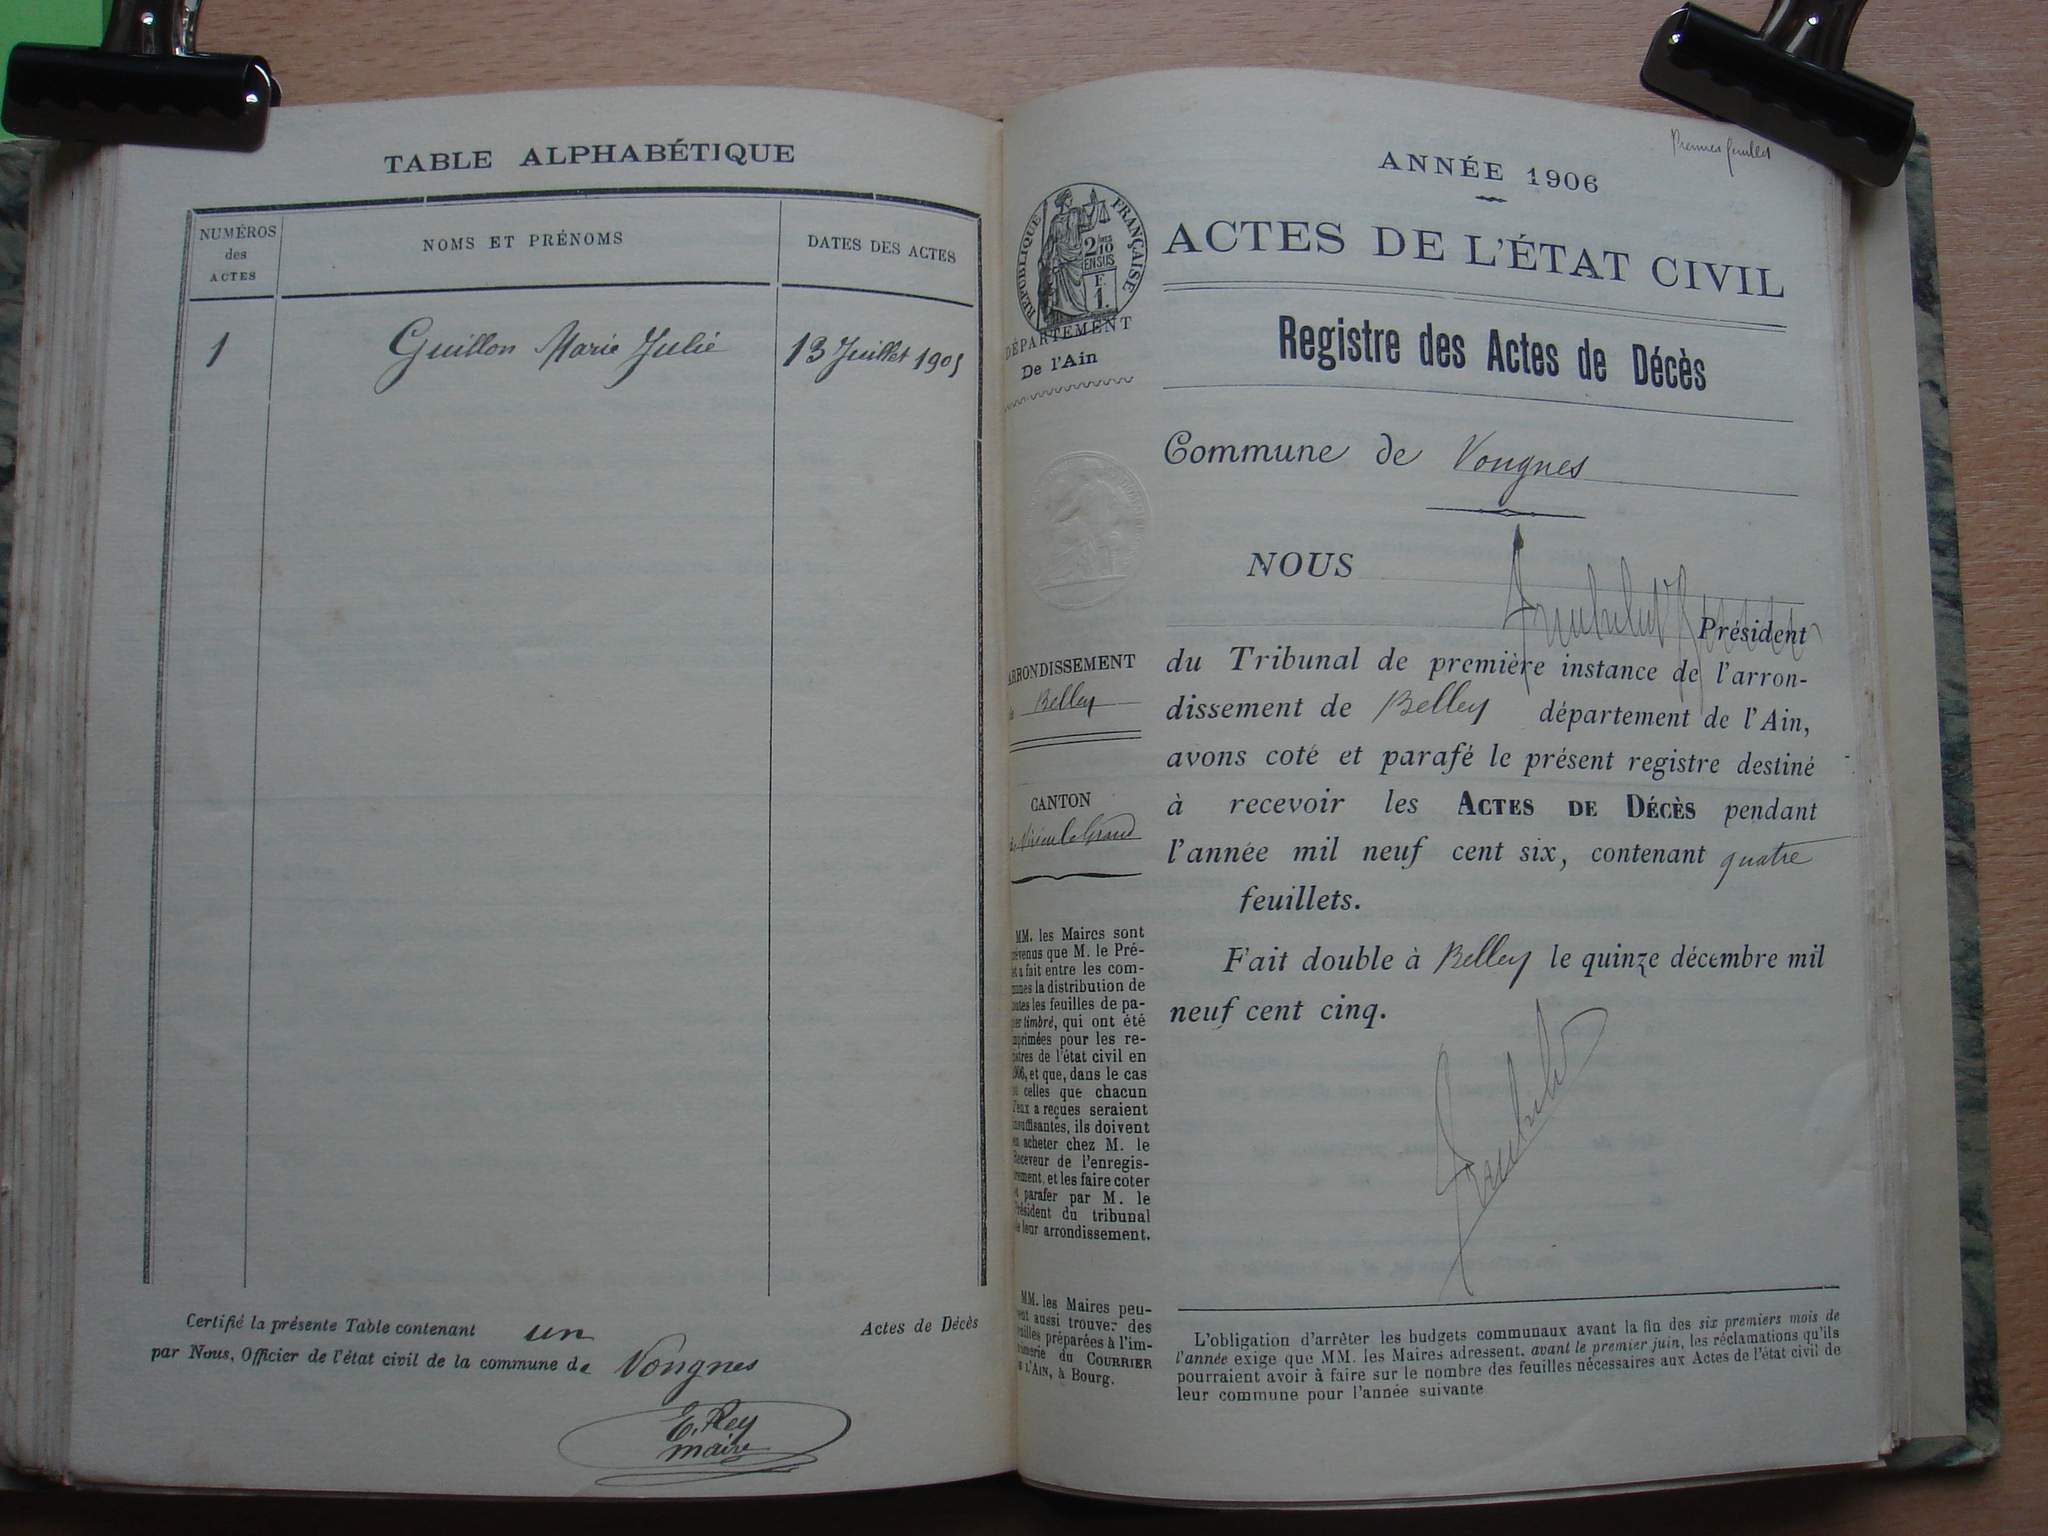 TABLE ALPHABÉTIQUE
NUMÉROS
des
ACTES
NOMS ET PRÉNOMS
DATES DES ACTES
1 Guillon Marie Julie 13 Juillet 1905
Certifié la présente Table contenant un Actes de Décès
par Nous, Officier de l'état civil de la commune de Vongnes
E. Rey
maire
Premier feuillet
ANNÉE 1906
ACTES DE L'ÉTAT CIVIL
RÉPUBLIQUE FRANÇAISE
2/10 EN SUS
F. 1.
DÉPARTEMENT
De l'Ain
Registre des Actes de Décès
Commune de Vongnes
NOUS
Président
du Tribunal de première instance de l'arron-
dissement de Belley département de l'Ain,
avons coté et parafé le présent registre destiné
à recevoir les ACTES DE DÉCÈS pendant
l'année mil neuf cent six, contenant quatre
feuillets.
Fait double à Belley le quinze décembre mil
neuf cent cinq.
ARRONDISSEMENT
de Belley
CANTON
de Virieu le Grand
MM. les Maires sont
prévenus que M. le Pré-
fet a fait entre les com-
munes la distribution de
toutes les feuilles de pa-
pier timbré, qui ont été
imprimées pour les re-
gistres de l'état civil en
1906, et que, dans le cas
où celles que chacun
d'eux a reçues seraient
insuffisantes, ils doivent
en acheter chez M. le
Receveur de l'enregis-
trement, et les faire coter
et parafer par M. le
Président du tribunal
de leur arrondissement.
MM. les Maires peu-
vent aussi trouver des
feuilles préparées à l'im-
primerie du COURRIER
DE L'AIN, à Bourg.
L'obligation d'arrêter les budgets communaux avant la fin des six premiers mois de
l'année exige que MM. les Maires adressent, avant le premier juin, les réclamations qu'ils
pourraient avoir à faire sur le nombre des feuilles nécessaires aux Actes de l'état civil de
leur commune pour l'année suivante